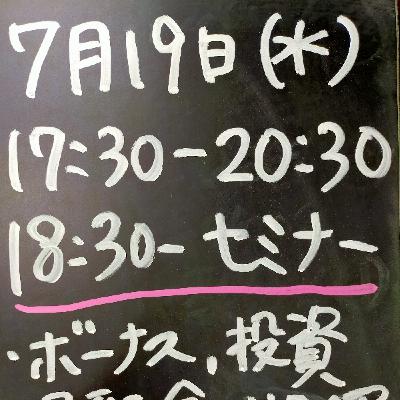 7月19日(水)
17:30-20:30
18:30-セミナー
・ボーナス、投資